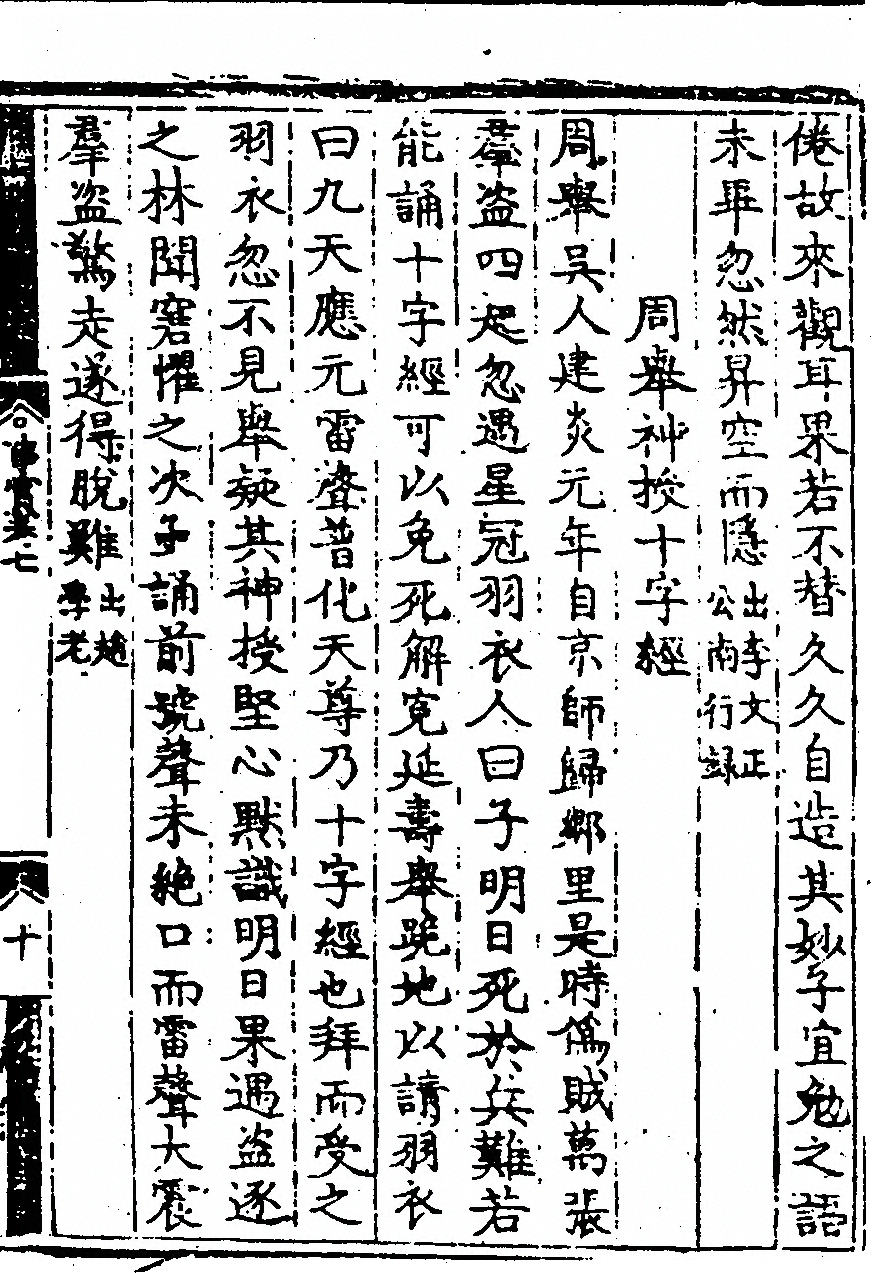 倦故來觀耳果若不替久久自造其妙子宜勉之語
未畢忽然昇空而隱出李文正公南行録
周舉神授十字經
周舉吳人建炎元年自京師歸鄉里是時僞賊萬張
羣盜四起忽遇星冠羽衣人曰子明日死於兵難若
能誦十字經可以免死解寃延壽舉跪地以請羽衣
曰九天應元雷聲普化天尊乃十字經也拜而受之
羽衣忽不見舉疑其神授堅心黙識明日果遇盜逐
之林間窘懼之次子誦前號聲未絶口而雷聲大震
羣盜驚走遂得脫難出趙學老
卷七
十